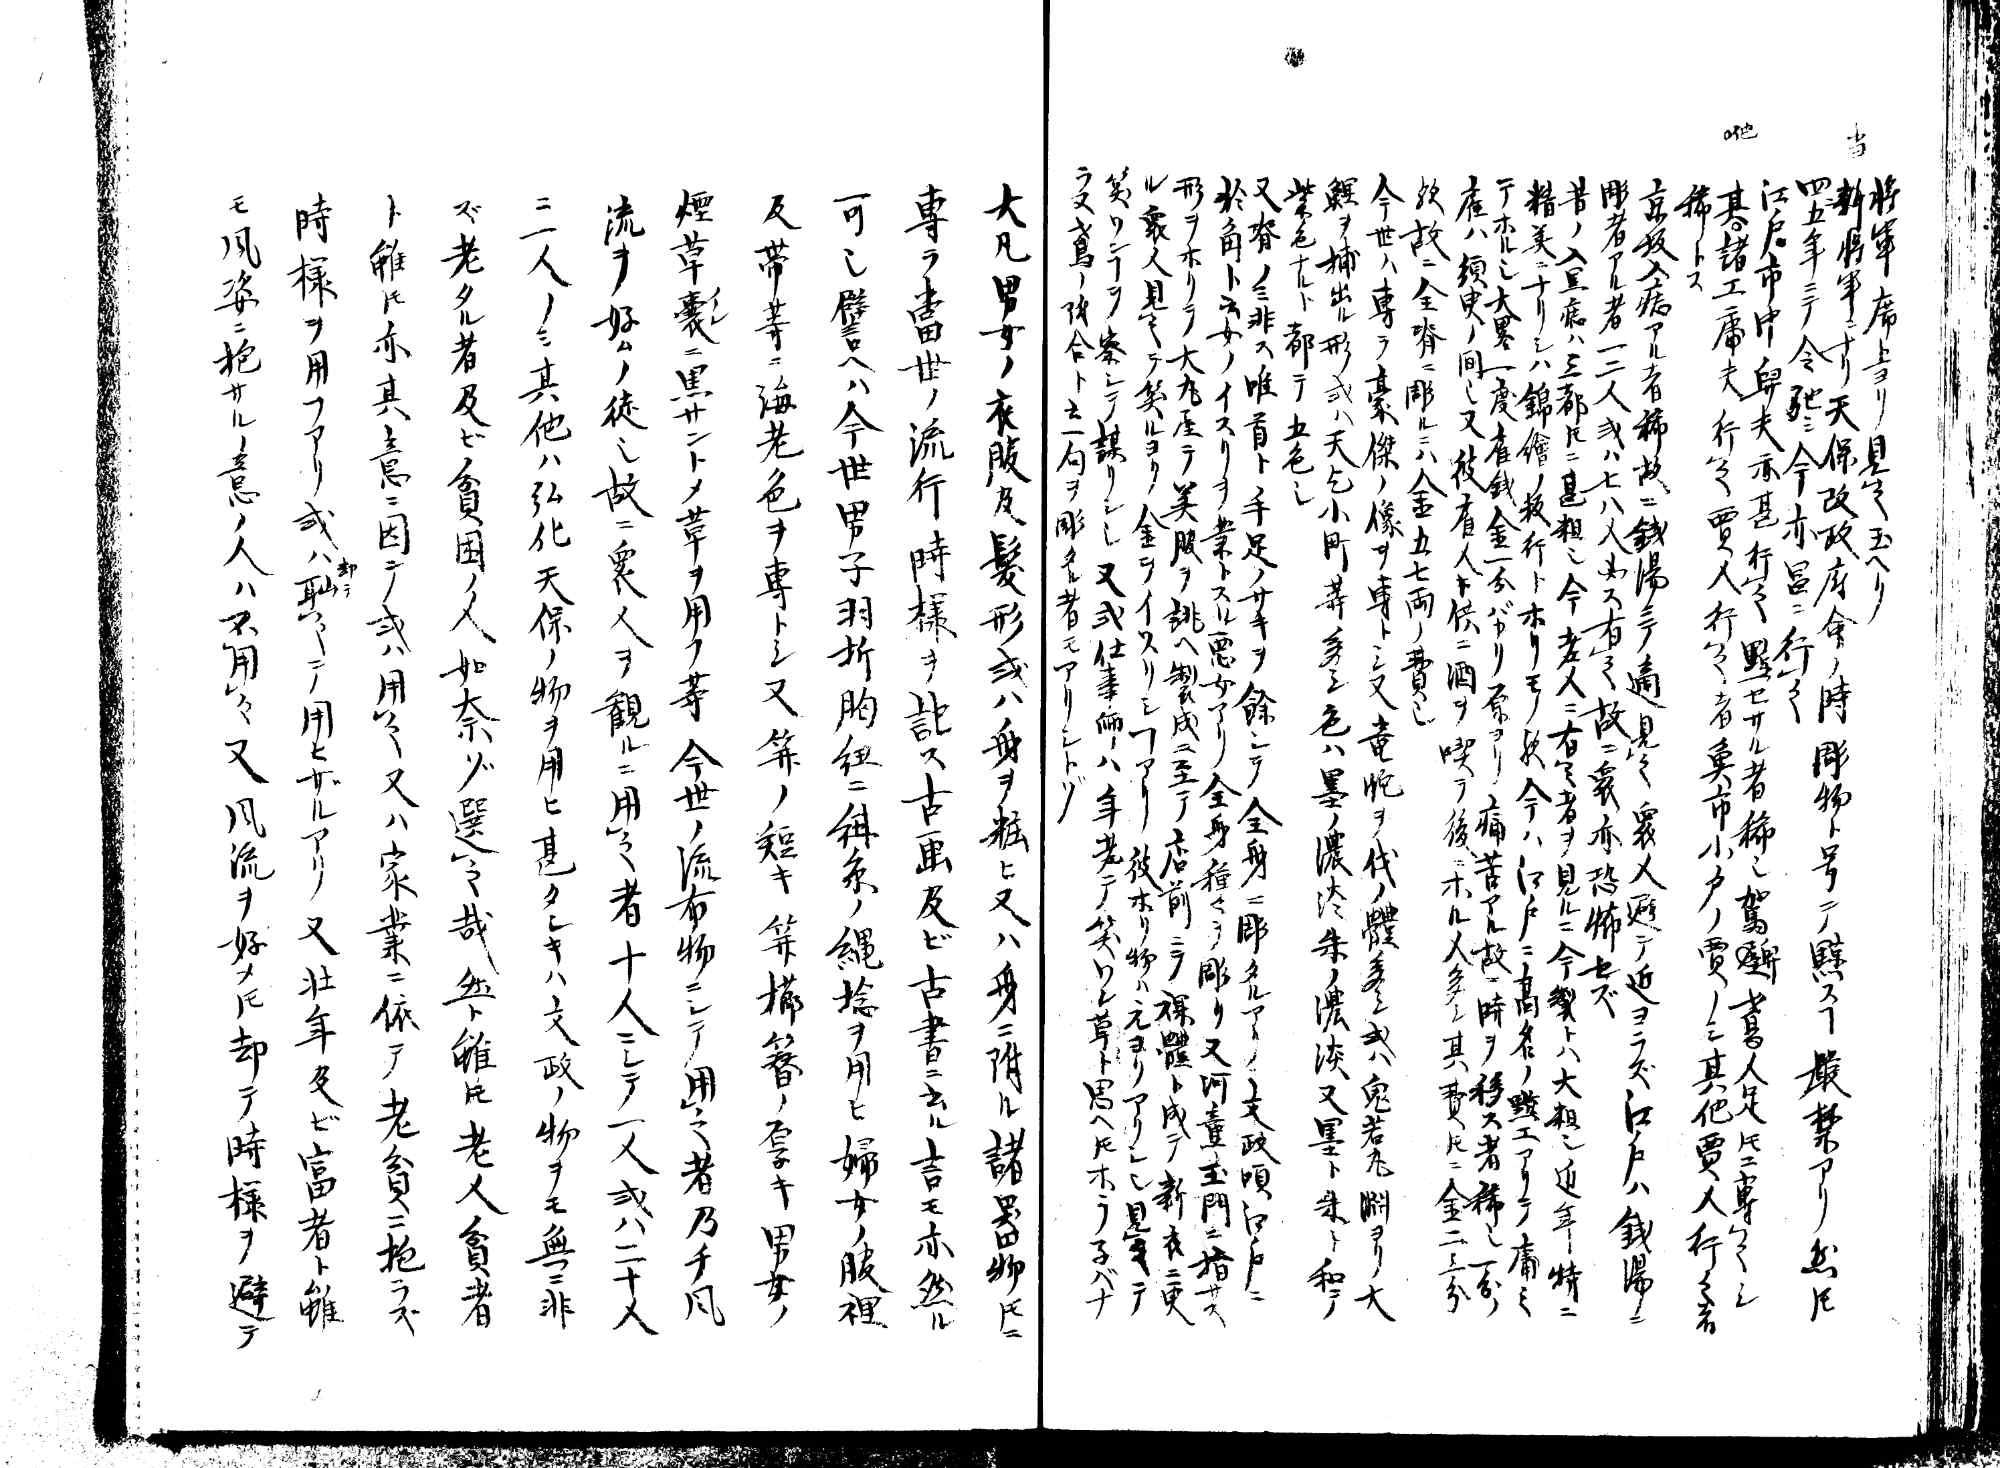 当
将軍席上ヨリ見之玉ヘリ
新将軍ニナリ天保改政府命ノ時彫物ト号ニテ黥スヿ厳禁アリ然ドモ
四五年ニテ令弛ニ今亦昌ニ行之
江戸市中舁夫亦甚行之黥セサル者稀也駕舁鳶人足トモニ専之トシ
其諸工雇夫行之賈人行之者魚市小戸ノ賈ノミ其他賈人行之者
稀トス
京坂入墨アル者稀故ニ銭湯ニテ適見之衆人避テ近ヨラズ江戸ハ銭湯ニ
彫者アル者一二人或ハ七八人必ス有之故ニ衆亦恐怖セズ
昔ノ入墨ハ三都トモニ甚粗也今老人ニ有之者ヲ見ルニ今製トハ大粗也近年特ニ
精美ニナリシハ錦絵ノ板行トホリモノ歟今ハ江戸ニ高名ノ黥工アリテ庸之
テホルシ大畧一度雇銭金一分バカリ原ヨリ痛苦アル故ニ時ヲ移ス者稀也一分ノ
雇ハ須臾ノ間也又彼者人ヲ供ニ酒ヲ喫テ後ニホル人多シ其費トモニ金二三分
歟故ニ全脊ニ彫ルニハ金五七両ノ費也
今世ハ専ラ豪傑ノ像ヲ専トシ又竜蛇ヲ伐ノ體多シ或ハ鬼若丸淵ヨリ大
鯉ヲ捕出ル形或ハ天乞小町等多シ色ハ墨ノ濃淡朱ノ濃淡又墨ト朱ト和シテ
紫色ナルト都テ五色也
又脊ノミ非ス唯首ト手足ノサキヲ餘シテ全身ニ彫タルアリ文政頃江戸ニ
於角ト云女ノイスリヲ業トスル悪女アリ全身種々ヲ彫リ又河童玉門ニ指サス
形ヲホリテ大丸屋テ美服ヲ誂ヘ製成ニ至テ店前ニテ裸體ト成テ新衣ニ更
ル衆人見之テ笑ルヨリ金ヲイスリシヿアリ彼ホリ物ハ元ヨリアリシ也見之テ
笑ワンヿヲ察シテ謀リシ也又或仕事師ハ年老テ笑ワレ草ト思ヘトモホラ子バナ
ラヌ鳶ノ附合ト云句ヲ彫タル者モアリシトゾ
大凡男女ノ衣服及髪形或ハ身ヲ粧ヒ又ハ身ニ附ル諸器物トモニ
専ラ當世ノ流行時様ヲ記ス古画及ビ古書ニ云ル言モ亦然ル
可シ譬ヘハ今世男子羽折胸紐ニ絹糸ノ縄捻ヲ用ヒ婦女ノ服裡
及帯等ニ海老色ヲ専トシ又笄ノ短キ笄櫛簪ノ厚キ男女ノ
煙草嚢ニ黒サントメ草ヲ用フ等今世ノ流布物ニシテ用之者乃チ風
流ヲ好ムノ徒也故ニ衆人ヲ観ルニ用之者十人ニシテ一人或ハ二十人
ニ一人ノミ其他ハ弘化天保ノ物ヲ用ヒ甚タシキハ文政ノ物ヲモ無ニ非
ズ老タル者及ビ貧困ノ人如奈ゾ選之哉然ト雖トモ老人貧者
ト雖トモ亦其意ニ因テ或ハ用之又ハ家業ニ依テ老貧ニ抱ラズ
時様ヲ用フアリ或ハ却テ恥之テ用ヒザルアリ又壮年及ビ富者ト雖
モ風姿ニ抱サルノ意ノ人ハ不用之又風流ヲ好メトモ却テ時様ヲ避テ